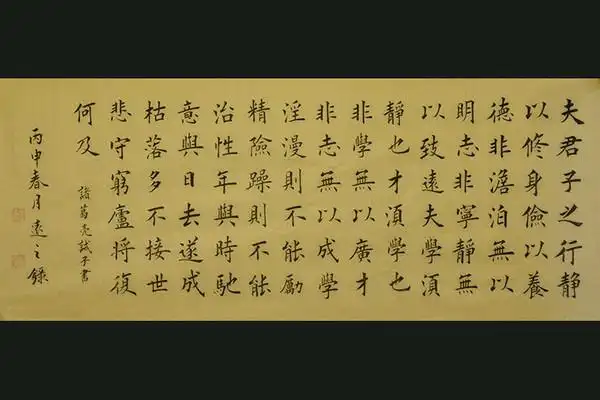 夫君子之行静
以修身儉以養
德非澹泊無以
明志非寧静無
以致遠夫學須
静也才須學也
非學無以廣才
非志無以成學
淫漫則不能勵
精險躁則不能
治性年與時馳
意與日去遂成
枯落多不接世
悲守窮廬將復
何及
諸葛亮誡子書
丙申春月遠之錄